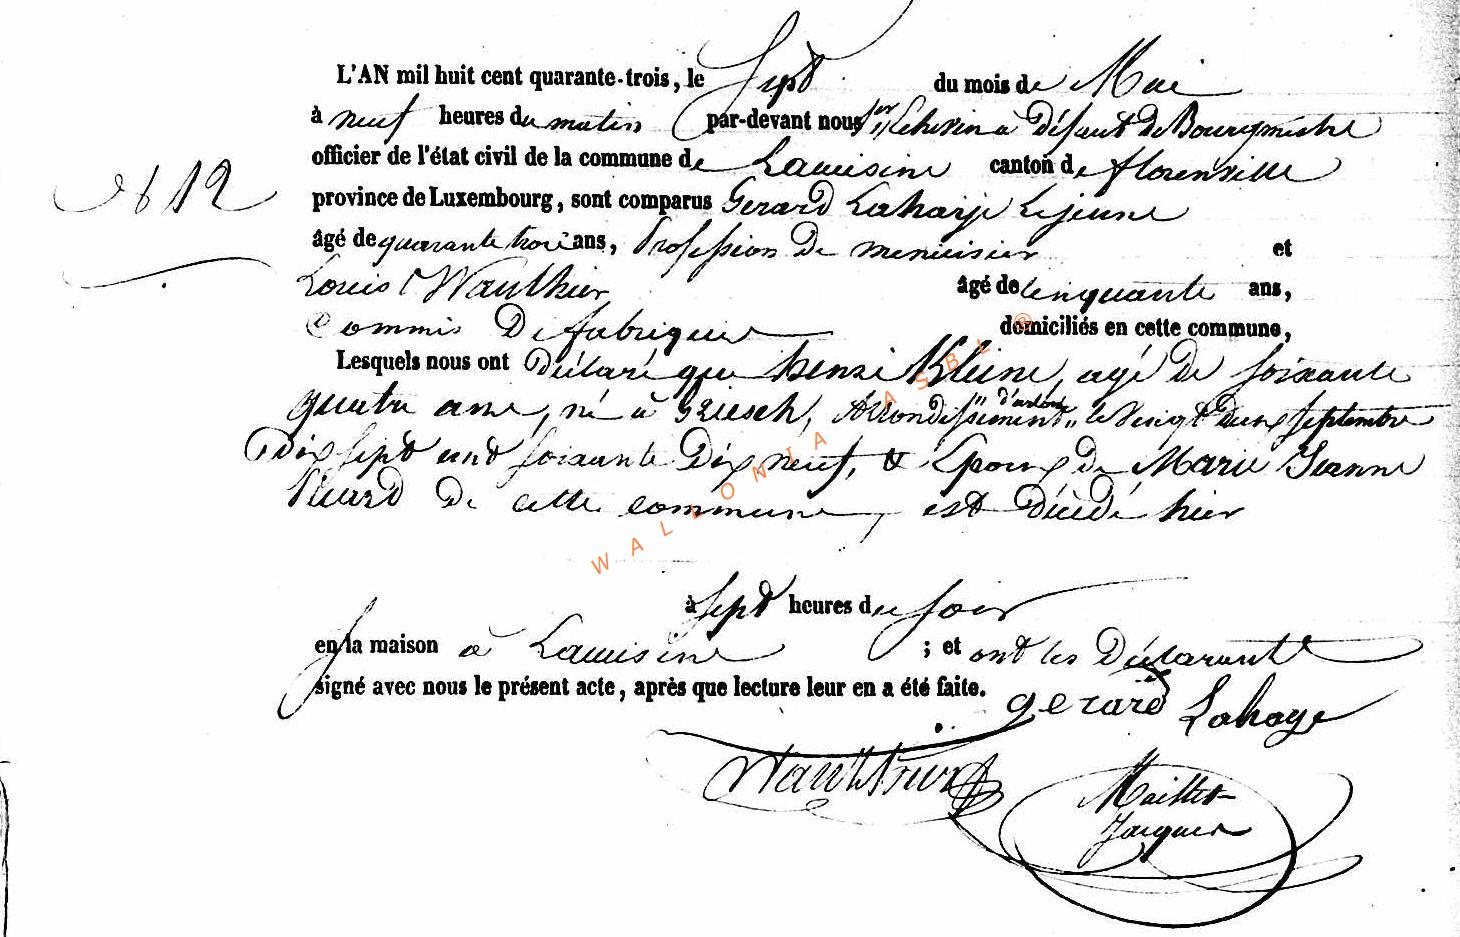 L'AN mil huit cent quarante-trois, le sept du mois de Mai
à neuf heures du matin par-devant nous 1er Echevin à défaut de Bourgmestre
officier de l'état civil de la commune de Lacuisine canton de florenville
N° 12
province de Luxembourg, sont comparus Gerard Lahaije Lejeune
âgé de quarante trois ans, Profession de menuisier et
Louis Wauthier âgé de cinquante ans,
Commis De fabrique domiciliés en cette commune,
Lesquels nous ont Déclaré que henri Kleine, agé de soixante
quatre ans, né à Grusch, Arrondissement "d'arlon" le Vingt deux septembre
Dix sept cent soixante Dix neuf, & Epoux de Marie Jeanne
de cette commune, est Décédé hier
à sept heures du soir
en la maison à Lacuisine ; et ont les Déclarants
signé avec nous le présent acte, après que lecture leur en a été faite.
gerard Lahaye
Wauthier
Maillet
Jacques
WALLONIA ASBL ®